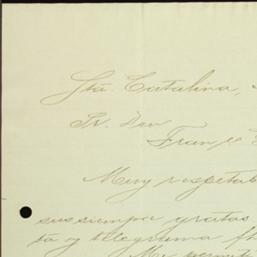 Sta. Catalina,
Sr. Don
Fran
Muy respetab
sus siempre gratas
ta y telegrama
Me permit